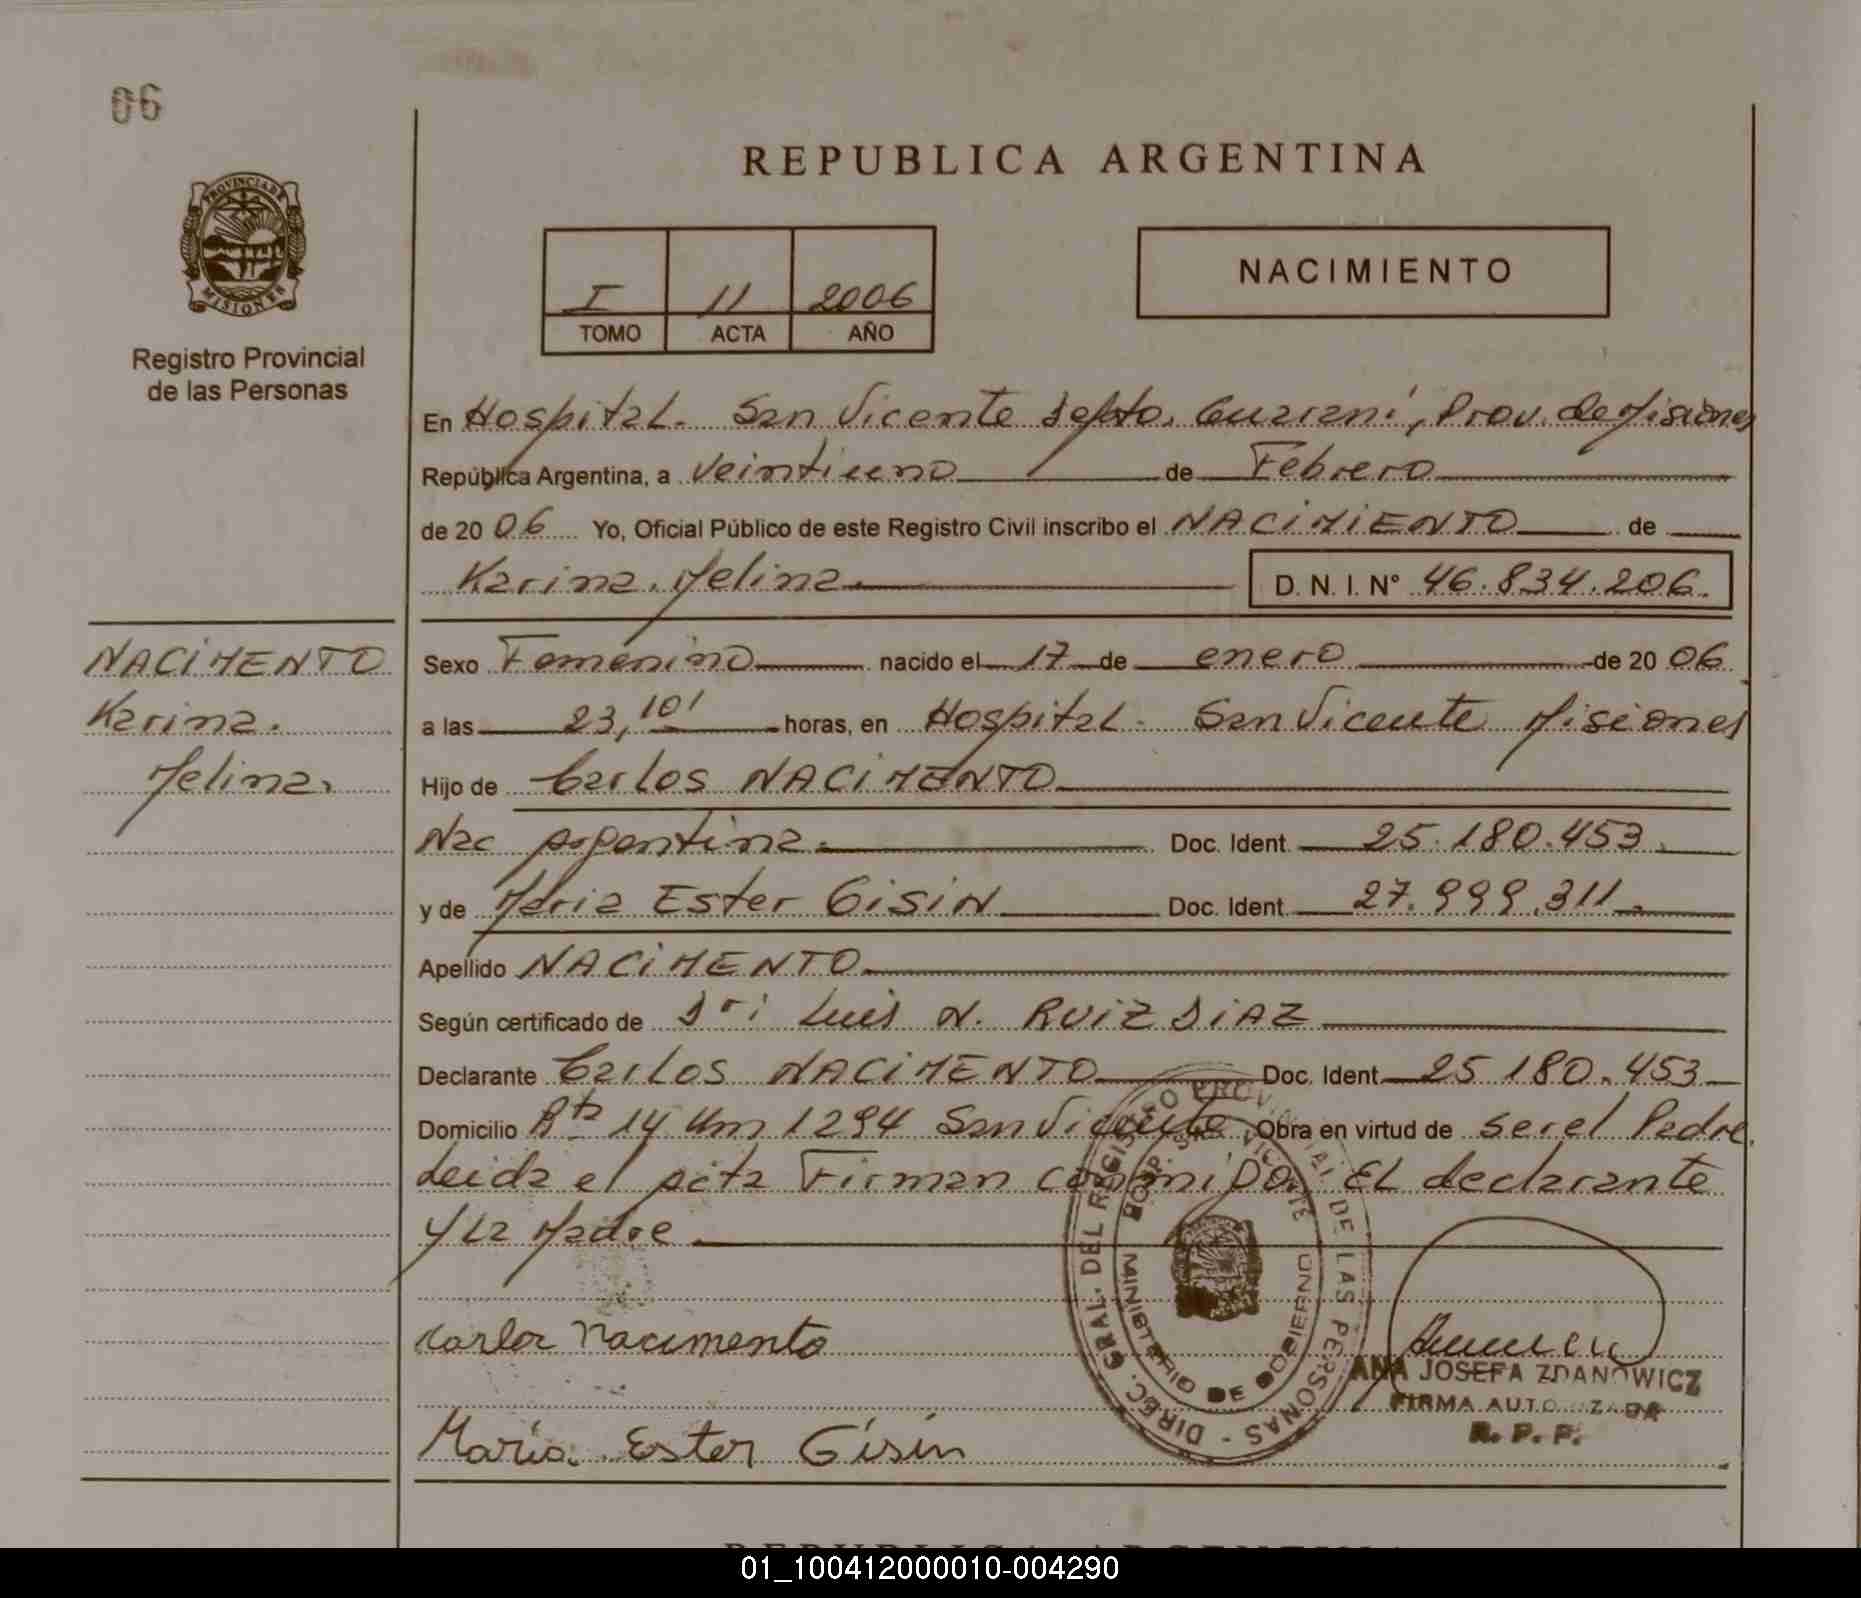 06
PROVINCIA DE
MISIONES
Registro Provincial
de las Personas
REPUBLICA ARGENTINA
I 11 2006
TOMO ACTA AÑO
NACIMIENTO
En Hospital. San Vicente Depto. Guaraní, Prov. de Misiones
República Argentina, a veintiuno de Febrero
de 20 06 Yo, Oficial Público de este Registro Civil inscribo el NACIMIENTO de
Karina. Melina. D. N. I. N° 46.834.206.
NACIMENTO
Karina.
Melina.
Sexo Femenino nacido el 17 de enero de 20 06
a las 23,10' horas, en Hospital. San Vicente Misiones
Hijo de Carlos NACIMENTO
Nac Argentina. Doc. Ident. 25.180.453.
y de Maria Ester Gisin Doc. Ident. 27.999.311.
Apellido NACIMENTO
Según certificado de Luis N. RUIZ DIAZ
Declarante Carlos NACIMENTO Doc. Ident. 25 180.453
Domicilio Rta 14 Km 1294 San Vicente Obra en virtud de ser el Padre.
Leida el acta Firman conmigo. El declarante
y La Madre
Carlos Nacimento
María. Ester Gisin
DIREC. GRAL. DEL REGISTRO PROVINCIAL DE LAS PERSONAS -
HOSP. SAN VICENTE
MINISTERIO DE GOBIERNO
ANA JOSEFA ZDANOWICZ
FIRMA AUTORIZADA
R. P. P.
REPUBLICA ARGENTINA
01_100412000010-004290